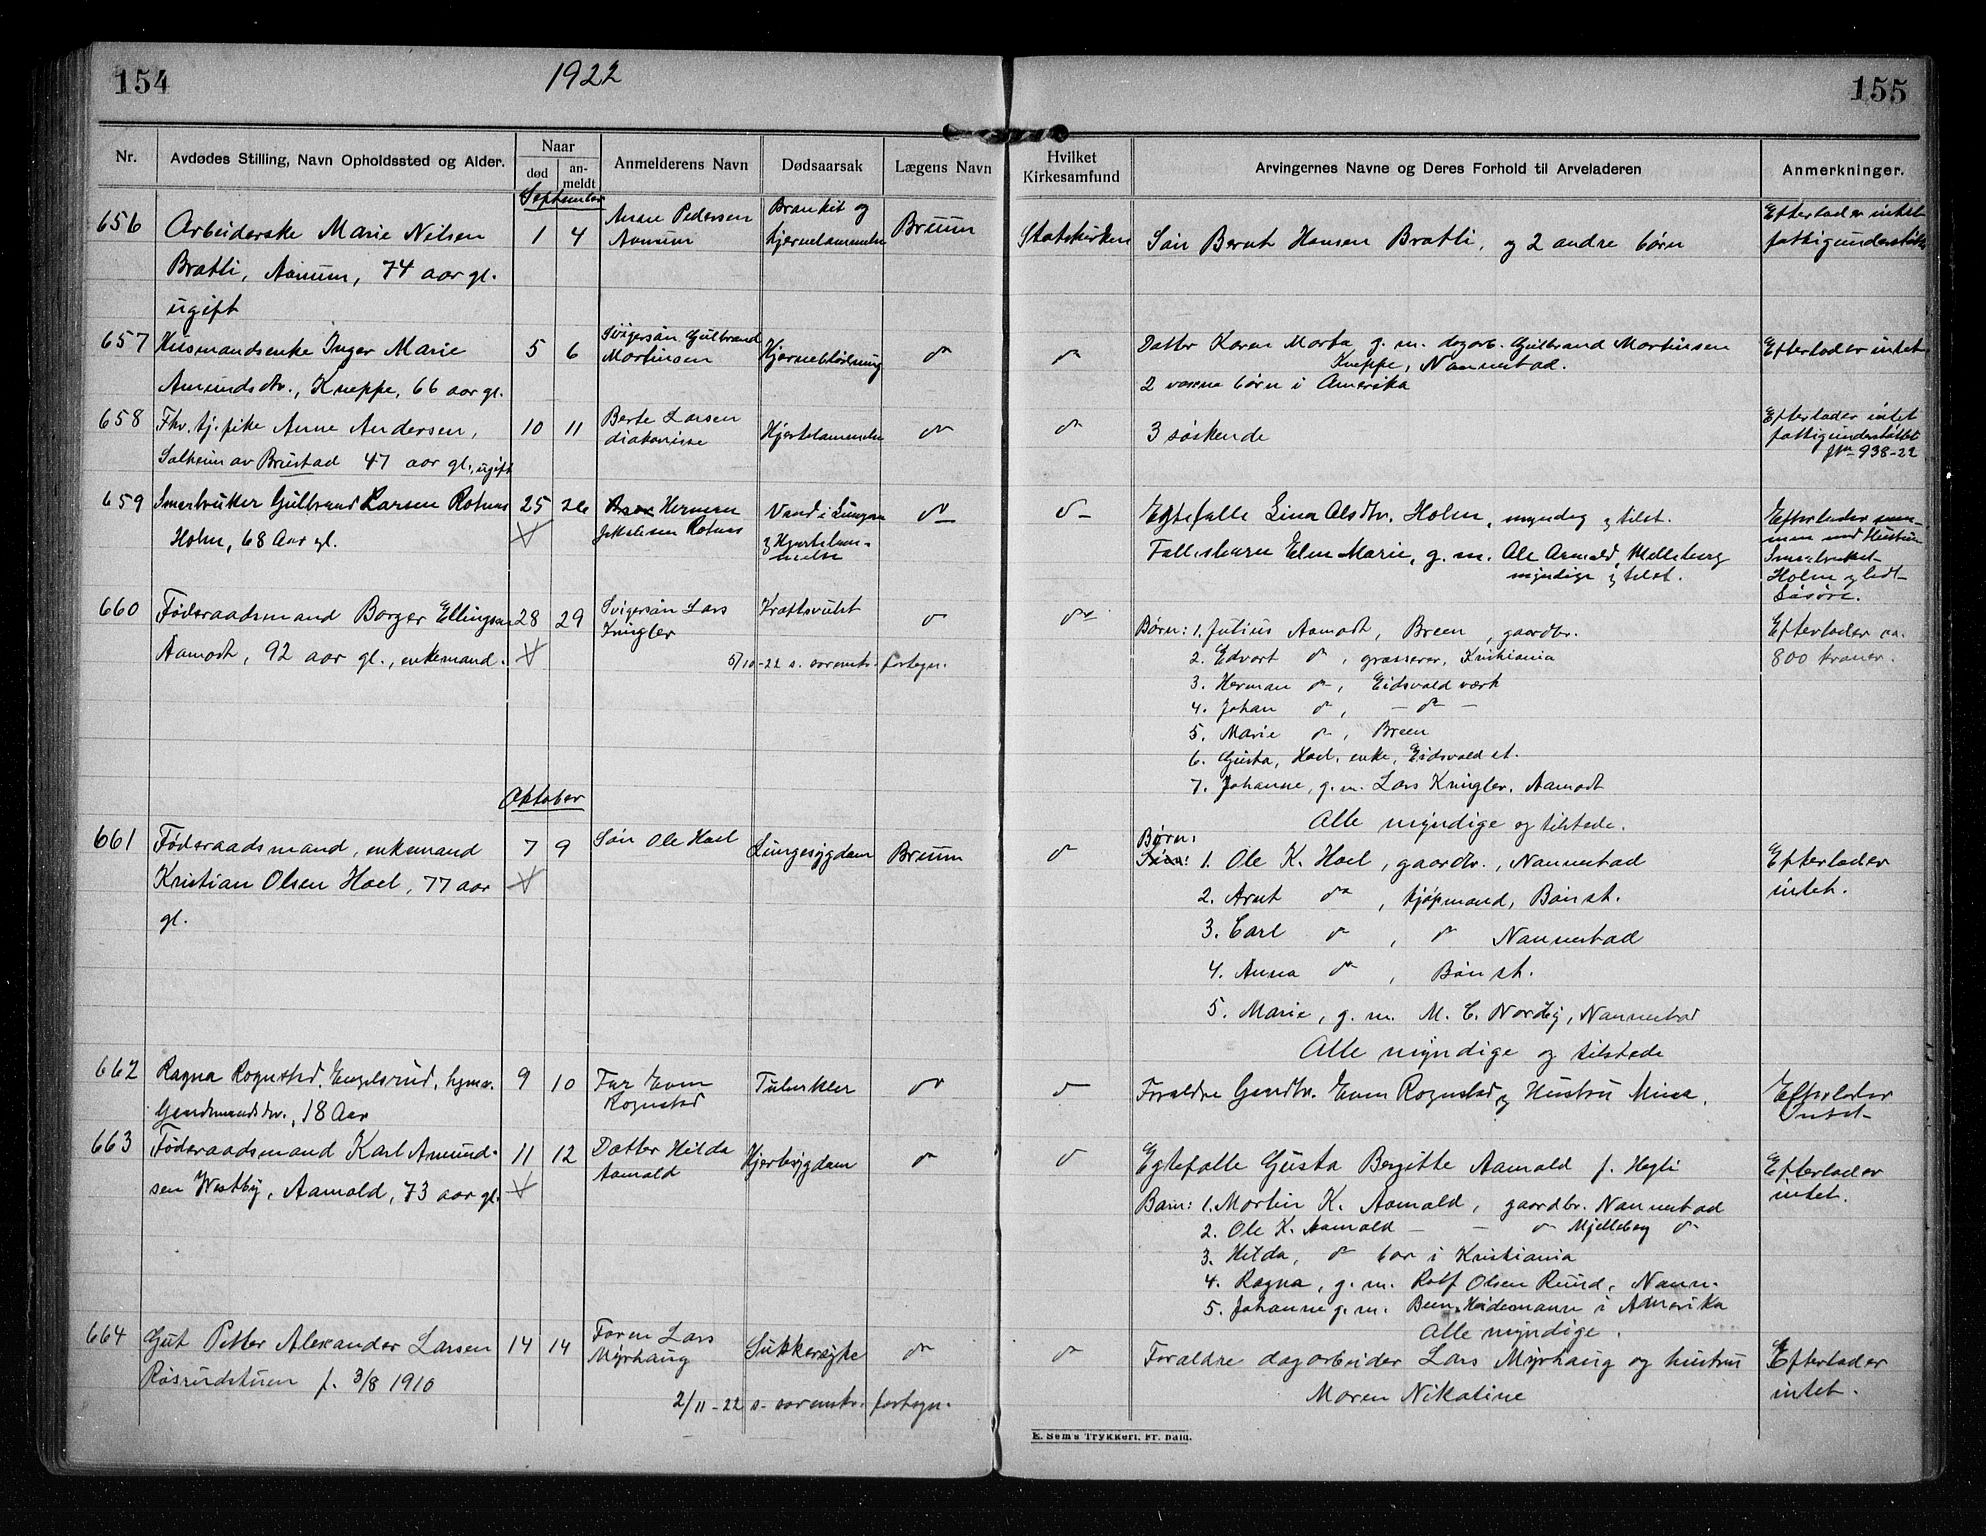 154
1922
155
Nr.
Avdødes Stilling, Navn Opholdssted og Alder.
Naar
død
an-
meldt
Anmelderens Navn
Dødsaarsak
Lægens Navn
Hvilket
Kirkesamfund
Arvingernes Navne og Deres Forhold til Arveladeren
Anmerkninger.
September
656
Arbeiderske Marie Nilsen
Bratli, Aanum, 74 aar gl.
ugift
1
4
Anne Pedersen
Aanum
Bronkit og
hjernelammelse
Bruum
Statskirken
Søn Bernt Hansen Bratli, og 2 andre børn
Efterlader intet
fattigunderstøtt
657
Husmandsenke Inger Marie
Amundsdtr., Kneppe, 66 aar gl.
5
6
Svigersøn Gulbrand
Martinsen
Hjerneblødning
do
do
Datter Karen Marta g. m. dagarb. Gulbrand Martinsen
Kneppe, Nannestad.
2 voxne børn i Amerika
Efterlader intet
658
Fhv. tj. pike Anne Andersen,
Solheim av Brustad 47 aar gl., ugift
10
11
Berte Larsen
diakonisse
Hjertelammelse
do
do
3 søskende
Efterlader intet
fattigunderstøttet
Jnr 938-22
659
Smaabruker Gulbrand Larsen Rotnes
Holm, 68 Aar gl.
25
26
Herman
Jakobsen Rotnes
Vand i Lungen
og Hjertelam-
melse
do
do
Egtefælle Lina Olsdtr. Holm, myndig og tilst.
Fællesbarn Elen Marie, g. m. Ole Aamold, Melleberg
myndige og tilst.
Efterlader sam-
men med Hustru
Smaabruket
Holm og lidt
Løsøre.
660
Føderaadsmand Borger Ellingsen
Aamodt, 92 aar gl., enkemand.
28
29
Svigersøn Lars
Kringler
Kræftsvulst
do
do
5/10-22 s. vorentv. fortegn.
Børn: 1. Julius Aamodt, Breen, gaardbr.
2. Edvart do, grosserer, Kristiania
3. Herman do, Eidsvold værk
4. Johan do, - do -
5. Marie do, Breen
6. Gusta, Hoel, enke, Eidsvold st.
7. Johanne, g. m. Lars Kringler, Aamodt
Alle myndige og tilstede.
Efterlader ca.
800 kroner.
Oktober
661
Føderaadsmand, enkemand
Kristian Olsen Hoel, 77 aar
gl.
7
9
Søn Ole Hoel
Lungesygdom
Bruum
do
Børn:
1. Ole K. Hoel, gaardbr., Nannestad
2. Arnt do, kjøpmand, Bøn st.
3. Carl do, do Nannestad
4. Anna do, Bøn st.
5. Marie, g. m. M. C. Nordby, Nannestad
Alle myndige og tilstede
Efterlader
intet.
662
Ragna Rognstad, Engelsrud, hjemv.
Gaardmandsdtr., 18 Aar
9
10
Far Even
Rognstad
Tuberkler
do
do
Forældre Gaardbr. Even Rognstad og Hustru Mina.
Efterlader
Intet
663
Føderaadsmand Karl Amund-
sen Westby, Aamold, 73 aar gl.
11
12
Datter Hilda
Aamold
Hjertesygdom
do
do
Egtefælle Gusta Bergitte Aamold f. Hegli
Barn: 1. Martin K. Aamold, gaardbr. Nannestad
2. Ole K. Aamold - - do Mjelleberg do
3. Hilda, do bor i Kristiania
4. Ragna, g. m. Rolf Olsen Ruud, Nann.
5. Johanne g. m. Heidemann i Amerika
Alle myndige.
Efterlader
intet.
664
Gut Petter Alexander Larsen
Røsrudstuen f. 3/8 1910
14
14
Faren Lars
Myrhaug
Sukkersyke
do
do
2/11-22 s. vorentv. fortegn.
Forældre dagarbeider Lars Myrhaug og hustru
Maren Nikoline
Efterlader
intet.
E. Sem's Trykkeri, Fr.hald.